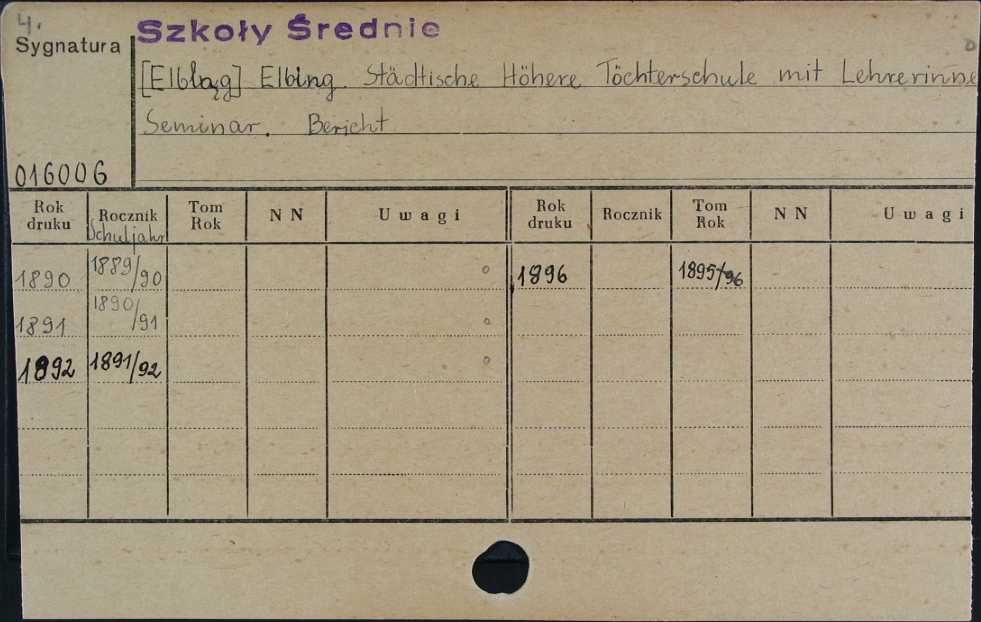 4.
Szkoły Średnie
Sygnatura
[Elbląg] Elbing. Städtische Höhere Töchterschule mit Lehrerinne
Seminar. Bericht
016006
Rok druku Rocznik Tom Rok NN Uwagi Rok druku Rocznik Tom Rok NN Uwagi
Schuljahr
1890 1889/90 o 1896 1895/96
1891 1890/91 o
1892 1891/92 o